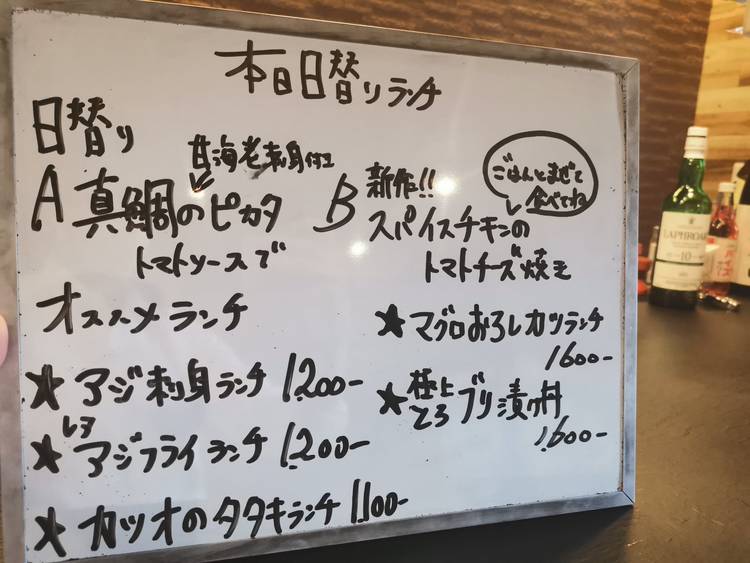 本日日替りランチ
日替り
甘海老刺身付き
A真鯛のピカタ
トマトソースで
B 新作!!
スパイスチキンの
トマトチーズ焼き
ごはんとまぜて
食べてね
オススメランチ
★アジ刺身ランチ 1,200-
★レアアジフライランチ 1,200-
★カツオのタタキランチ 1,100-
★マグロおろしカツランチ
1,600-
★極上とろブリ漬け丼
1,600-
LAPHROAIG
10